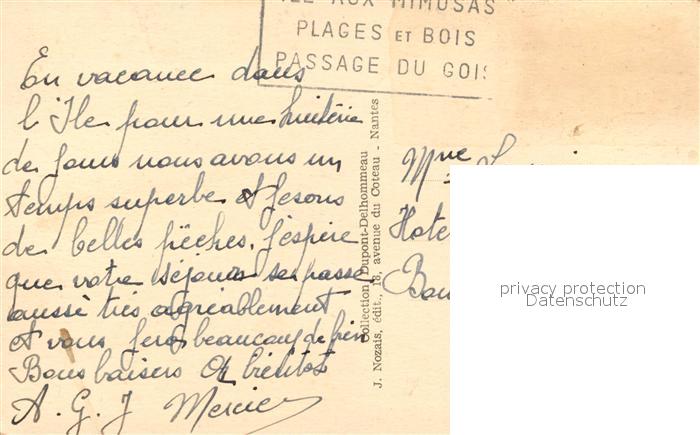 ILE AUX MIMOSAS
PLAGES ET BOIS
PASSAGE DU GOIS
En vacance dans
l'Ile pour une huitaine
de jours nous avons un
temps superbe et fesons
de belles pêches, j'espère
que votre séjour se passe
aussi très agréablement
et vous fera beaucoup de bien
Bons baisers et bientôt
A. G. J Mercier
Collection Dupont-Delhommeau
J. Nozais, édit., 18, avenue du Coteau - Nantes
Mme
Hote
privacy protection
Datenschutz